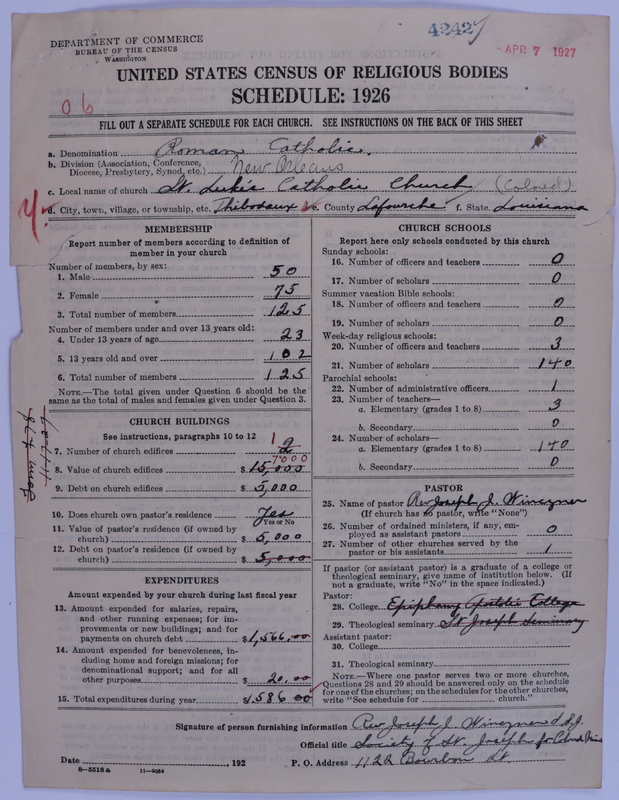 DEPARTMENT OF COMMERCE
BUREAU OF THE CENSUS
WASHINGTON
4242
APR 7 1927
UNITED STATES CENSUS OF RELIGIOUS BODIES
SCHEDULE: 1926
06
FILL OUT A SEPARATE SCHEDULE FOR EACH CHURCH. SEE INSTRUCTIONS ON THE BACK OF THIS SHEET
a. Denomination Roman Catholic.
b. Division (Association, Conference, Diocese, Presbytery, Synod, etc.) New Orleans
c. Local name of church St. Luke's Catholic Church (Colored)
d. City, town, village, or township, etc. Thibodaux e. County Lafourche f. State Louisiana
MEMBERSHIP
Report number of members according to definition of
member in your church
Number of members, by sex:
1. Male 50
2. Female 75
3. Total number of members 125
Number of members under and over 13 years old:
4. Under 13 years of age 23
5. 13 years old and over 102
6. Total number of members 125
NOTE.—The total given under Question 6 should be
same as the total of males and females given under Question 3.
CHURCH BUILDINGS
See instructions, paragraphs 10 to 12
7. Number of church edifices 1 2
7000
8. Value of church edifices $ 15,000
9. Debt on church edifices $ 5,000
10. Does church own pastor's residence Yes
Yes or No
11. Value of pastor's residence (if owned by
church) $ 5,000
12. Debt on pastor's residence (if owned by
church) $ 5,000
EXPENDITURES
Amount expended by your church during last fiscal year
13. Amount expended for salaries, repairs,
and other running expenses; for im-
provements or new buildings; and for
payments on church debt $1,566.00
14. Amount expended for benevolences, in-
cluding home and foreign missions; for
denominational support; and for all
other purposes $ 20.00
15. Total expenditures during year $1586 00
CHURCH SCHOOLS
Report here only schools conducted by this church
Sunday schools:
16. Number of officers and teachers 0
17. Number of scholars 0
Summer vacation Bible schools:
18. Number of officers and teachers 0
19. Number of scholars 0
Week-day religious schools:
20. Number of officers and teachers 3
21. Number of scholars 140
Parochial schools:
22. Number of administrative officers 1
23. Number of teachers—
a. Elementary (grades 1 to 8) 3
b. Secondary 0
24. Number of scholars—
a. Elementary (grades 1 to 8) 140
b. Secondary 0
PASTOR
25. Name of pastor Rev Joseph J.
(If church has no pastor, write "None")
26. Number of ordained ministers, if any, em-
ployed as assistant pastors 0
27. Number of other churches served by the
pastor or his assistants 1
If pastor (or assistant pastor) is a graduate of a college or
theological seminary, give name of institution below. (If
not a graduate, write "No" in the space indicated.)
Pastor:
28. College Epiphany Apostolic College
29. Theological seminary St Joseph Seminary
Assistant pastor:
30. College
31. Theological seminary
NOTE.—Where one pastor serves two or more churches,
Questions 28 and 29 should be answered only on the schedule
for one of the churches; on the schedules for the other churches,
write "See schedule for church."
Signature of person furnishing information Rev Joseph J.
Official title Society of St. Joseph for Colored
Date , 192 P. O. Address 1122 Bourbon St.
8—5518a 11—9054